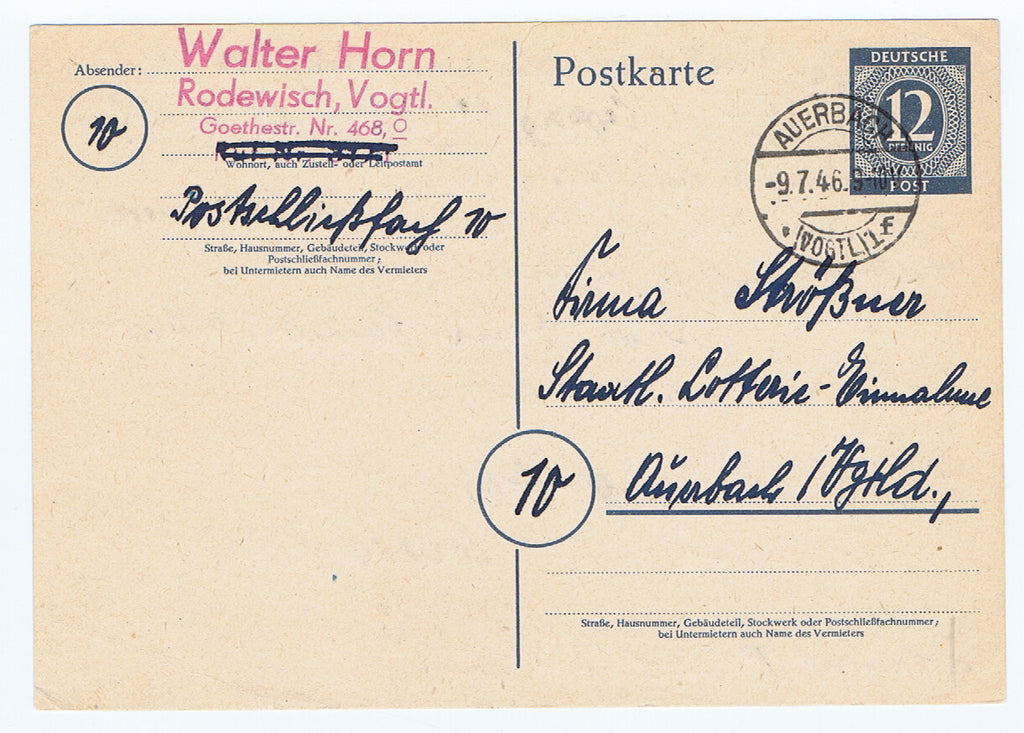 Absender:
Walter Horn
Rodewisch, Vogtl.
Goethestr. Nr. 468, O
10
Wohnort, auch Zustell- oder Leitpostamt
Postschließfach 10
Straße, Hausnummer, Gebäudeteil, Stockwerk oder
Postschließfachnummer;
bei Untermietern auch Name des Vermieters
Postkarte
DEUTSCHE
12
PFENNIG
POST
AUERBACH
-9.7.46.
(VOGTL) 1 f
Firma Strößner
Staatl. Lotterie-Einnahme
10
Auerbach /Vgtld.,
Straße, Hausnummer, Gebäudeteil, Stockwerk oder Postschließfachnummer;
bei Untermietern auch Name des Vermieters